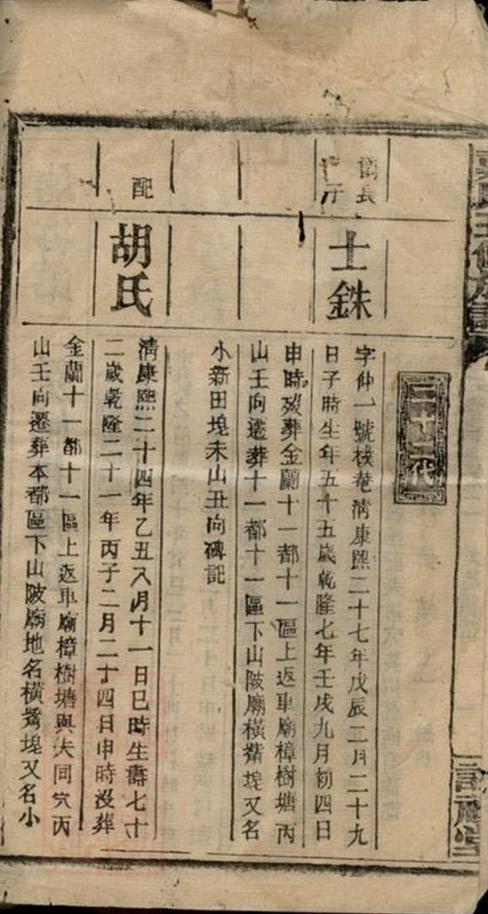 二十二代
長子
士銖
字仲一號栈菴清康熙二十七年戊辰二月二十九
日子時生年五十五歲乾隆七年壬戌九月初四日
申時歿葬金蘭十一都十一區上返車廟樟樹塘丙
山壬向遷葬十一都十一區下山陂廟橫觜埦又名
小新田埦未山丑向碑記
配
胡氏
清康熙二十四年乙丑八月十一日巳時生壽七十
二歲乾隆二十一年丙子二月二十四日申時沒葬
金蘭十一都十一區上返車廟樟樹塘與夫同穴丙
山壬向遷葬本都區下山陂廟地名橫觜埦又名小